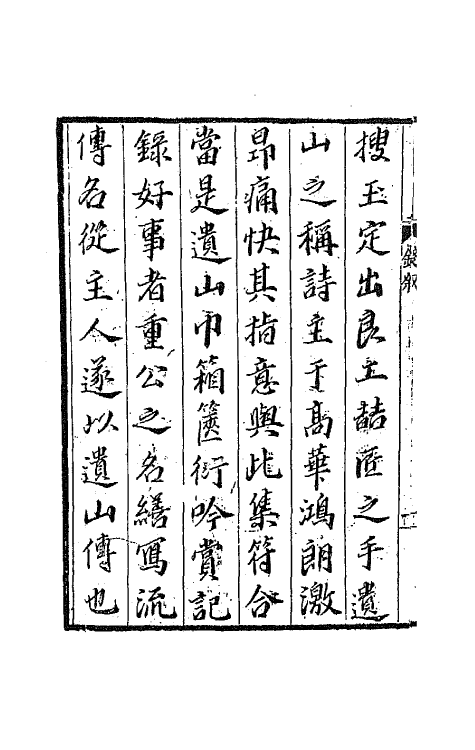 搜玉定出良工喆匠之手遺
山之稱詩主于高華鴻朗激
昻痛快其指意與此集符合
當是遺山巾箱篋衍吟賞記
錄好事者重公之名繕寫流
傳名從主人遂以遺山傳也